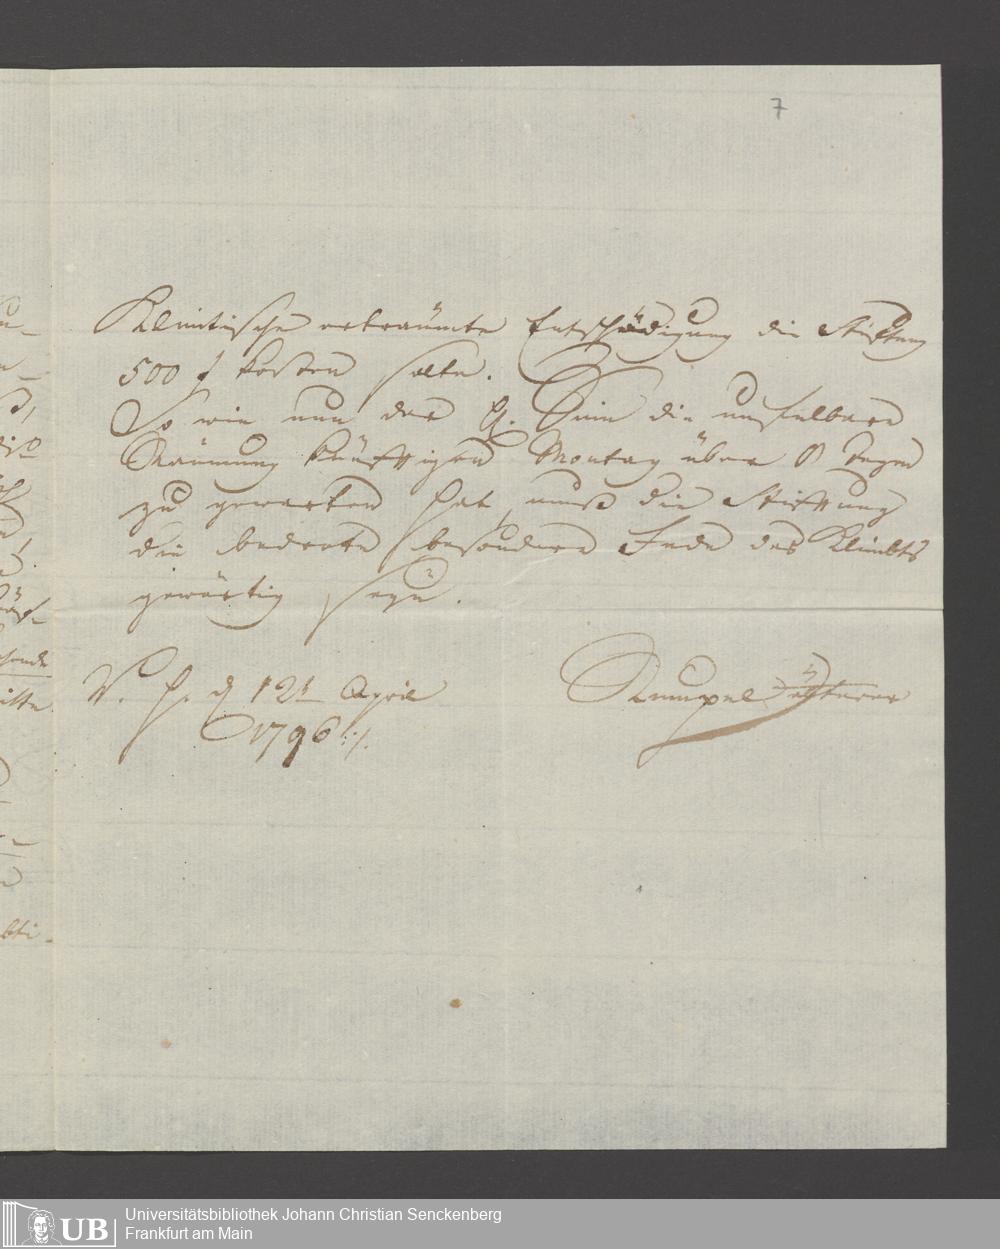 7
Klimtische erträumte Entschädigung die Stiftung
500 f kosten solte.
So wie nun der H. die unfelbare
Räumung künfftigen Montag über 8 Tage
zu gewarten hat, muß die Stifftung
die bedrote besondere Fede des Klimbts
gewärtig seyn.
V. H. d 12t April
1796 :/.
Rumpel älterer
Universitätsbibliothek Johann Christian Senckenberg
Frankfurt am Main
UB